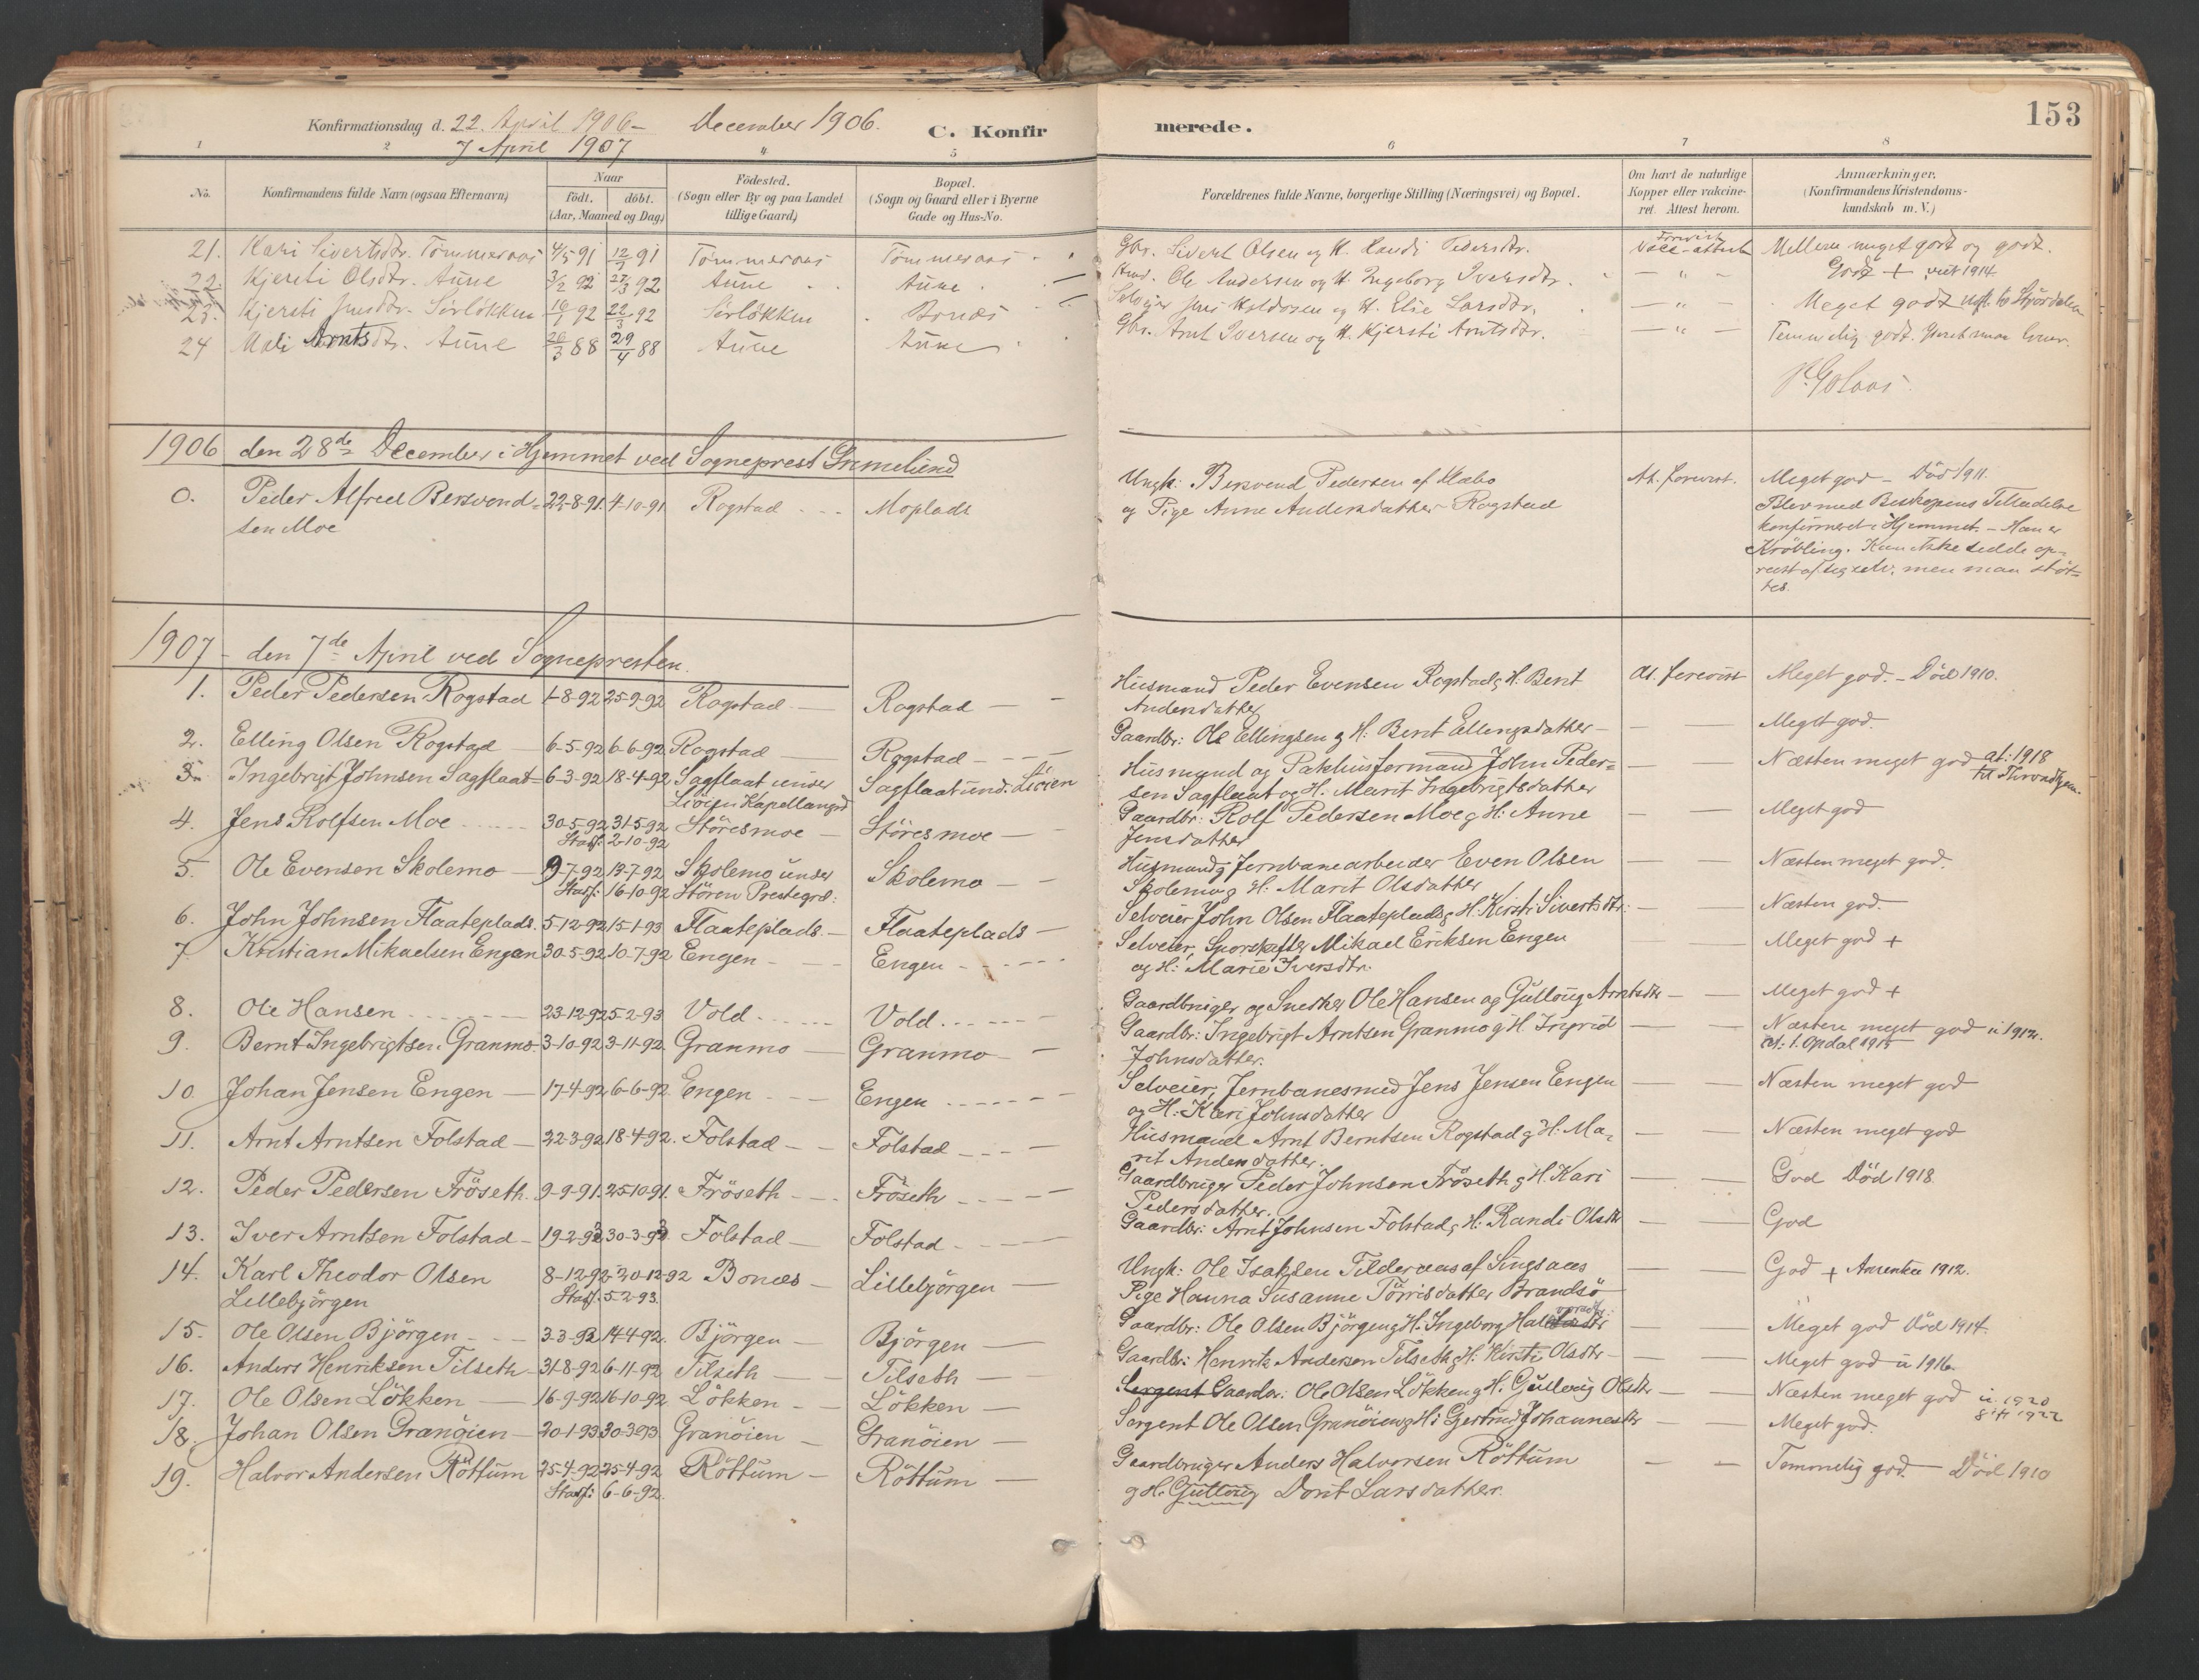 153
Konfirmationsdag d. 22. April 1906 — December 1906.
7 April 1907
C. Konfirmerede.
1 2 4 5 6 7 8
No. Konfirmandens fulde Navn (ogsaa Efternavn) Naar født. døbt. (Aar, Maaned og Dag) Fødested. (Sogn eller By og paa Landet tillige Gaard) Bopæl. (Sogn og Gaard eller i Byerne Gade og Hus-No. Forældrenes fulde Navne, borgerlige Stilling (Næringsvei) og Bopæl. Om havt de naturlige Kopper eller vaccineret. Attest herom. Anmærkninger. (Konfirmandens Kristendomskundskab m. V.)
21. Kari Sivertsdtr. Tømmeraas 4/5 91 12/7 91 Tømmeraas Tømmeraas Gbr. Sivert Olsen og H. Randi Pedersdtr. Forevist vacc-attest Mellem meget godt og godt.
22. Kjersti Olsdtr. Aune 3/2 92 27/3 92 Aune Aune Ole Andersen og H. Ingeborg Iversdtr. — " — Godt + 1914
23. Kjersti Jensdtr. Sørløkken 16/1 92 22/3 92 Sørløkken Bonæs Selveier Jens Haldosen og H. Elie Larsdtr. — " — Meget godt utfl. til Stjørdalen
24 Mali Arntsdtr. Aune 26/3 88 29/4 88 Aune Aune Gbr. Arnt Iversen og H. Kjersti Arntsdtr. — " — Temmelig godt.
1906 den 28de December i Hjemmet ved Sogneprest
0. Peder Alfred Bersvend- 22-8-91. 4-10-91 Rogstad Moplads Ungk: Bersvend Pedersen af Mæbo At. forevist. Meget god — Død 1911.
sen Moe og Pige Anne Andersdatter Rogstad Blev med Biskopens Tilladelse
konfirmeret i Hjemmet. — Han er
Krøbling. Kan ikke sidde op-
reist af sig selv, men maa støt-
tes.
1907 — den 7de April ved Sognepresten.
1. Peder Pedersen Rogstad 1-8-92 25-9-92 Rogstad — Rogstad — Husmand Peder Evensen Rogstad g H: Berit At. forevist Meget god. — Død 1910.
Andersdatter
2. Elling Olsen Rogstad 6-5-92 6-6-92 Rogstad Rogstad — Gaardbr: Ole Ellingsen g H: Berit Ellingsdatter — — Meget god.
3. Ingebrigt Johnsen Sagflaat 6-3-92 18-4-92 Sagflaat under Sagflaat und. Liøien Husmand og Pakhusformand John Peder- — — Næsten meget god at: 1918 til Throndhjem.
Liøien Kapellangrd sen Sagflaat og H. Marit Ingebrigtsdatter
4. Jens Rolfsen Moe 30-5-92 31-5-92 Støresmoe — Støresmoe — Gaardbr: Rolf Pedersen Moe g H: Anne — — Meget god
Stadf: 2-10-92 Jensdatter
5. Ole Evensen Skolemo — 9-7-92 13-7-92 Skolemo under Skolemo — Husmand g Jernbanearbeider Even Olsen — — Næsten meget god.
Stadf: 16-10-92 Støren Prestegrd: Skolemo g H: Marit Olsdatter
6. John Johnsen Flaateplads. 5-12-92 15-1-93 Flaateplads. — Flaateplads — Selveier John Olsen Flaateplads g H: Kirsti Sivertsdtr: — Næsten god
7. Kristian Mikaelsen Engen 30-5-92 10-7-92 Engen — Engen Selveier, Sporskifter Mikael Eriksen Engen — Meget god +
og H: Marie Iversdtr.
8. Ole Hansen 23-12-92 5-2-93 Vold Vold Gaardbruger og Snedker Ole Hansen og Gulloug Arntsdtr — — Meget god +
9. Bernt Ingebrigtsen Granmo 3-10-92 3-11-92. Granmo — Granmo — Gaardbr: Ingebrigt Arntsen Granmo g H. Ingrid — — Næsten meget god u 1912.
Johnsdatter. at: t. Opdal 1915
10. Johan Jensen Engen — 17-4-92 6-6-92 Engen Engen Selveier, Jernbanesmed Jens Jensen Engen — — Næsten meget god
og H: Kari Johnsdatter
11. Arnt Arntsen Folstad — 22-3-92 18-4-92. Folstad — Folstad — Husmand Arnt Berntsen Rogstad g H: Ma- — — Næsten meget god
rit Andersdatter.
12. Peder Pedersen Frøseth. 9-9-91. 25-10-91. Frøseth — Frøseth — Gaardbruger Peder Johnsen Frøseth g H. Kari — — God Død 1918.
Pedersdatter.
13. Iver Arntsen Folstad — 19-2-93 30-3-93 Folstad — Folstad Gaardbr: Arnt Johnsen Folstad g H: Randi Olsdtr — — God
14. Karl Theodor Olsen 8-12-92 20-12-92 Bonæs — Lillebjørgen — Ungk: Ole Isaksen Tilderaas af Singsaas — — God + Amerika 1912.
Lillebjørgen Stadf: 5-2-93. Pige Hanna Susanne Tørrisdatter Brandsø
15. Ole Olsen Bjørgen 3-3-92 14-4-92. Bjørgen — Bjørgen — Gaardbr: Ole Olsen Bjørgen g H: Ingeborg — — Meget god Død 1914.
16. Anders Henriksen Tilseth 31-8-92 6-11-92 Tilseth — Tilseth — Gaardbr: Henrik Andersen Tilseth g H: Kirsti Olsdtr — — Meget god u 1916
17. Ole Olsen Løkken — 16-9-92 16-10-92 Løkken — Løkken — Sergent Gaardbr: Ole Olsen Løkken g H: Gulloug Olsdtr — — Næsten meget god u 1920
18. Johan Olsen Granøien — 20-1-93 30-3-93 Granøien — Granøien — Sergent Ole Olsen Granøien g H: Gjertrud Johannesdtr — — Meget god.
19. Halvor Andersen Røttum 25-4-92 25-4-92 Røttum — Røttum — Gaardbruger Anders Halvorsen Røttum — — Temmelig god. — Død 1910
Stadf: 6-6-92. g H: Gulloug Dorit Larsdatter.